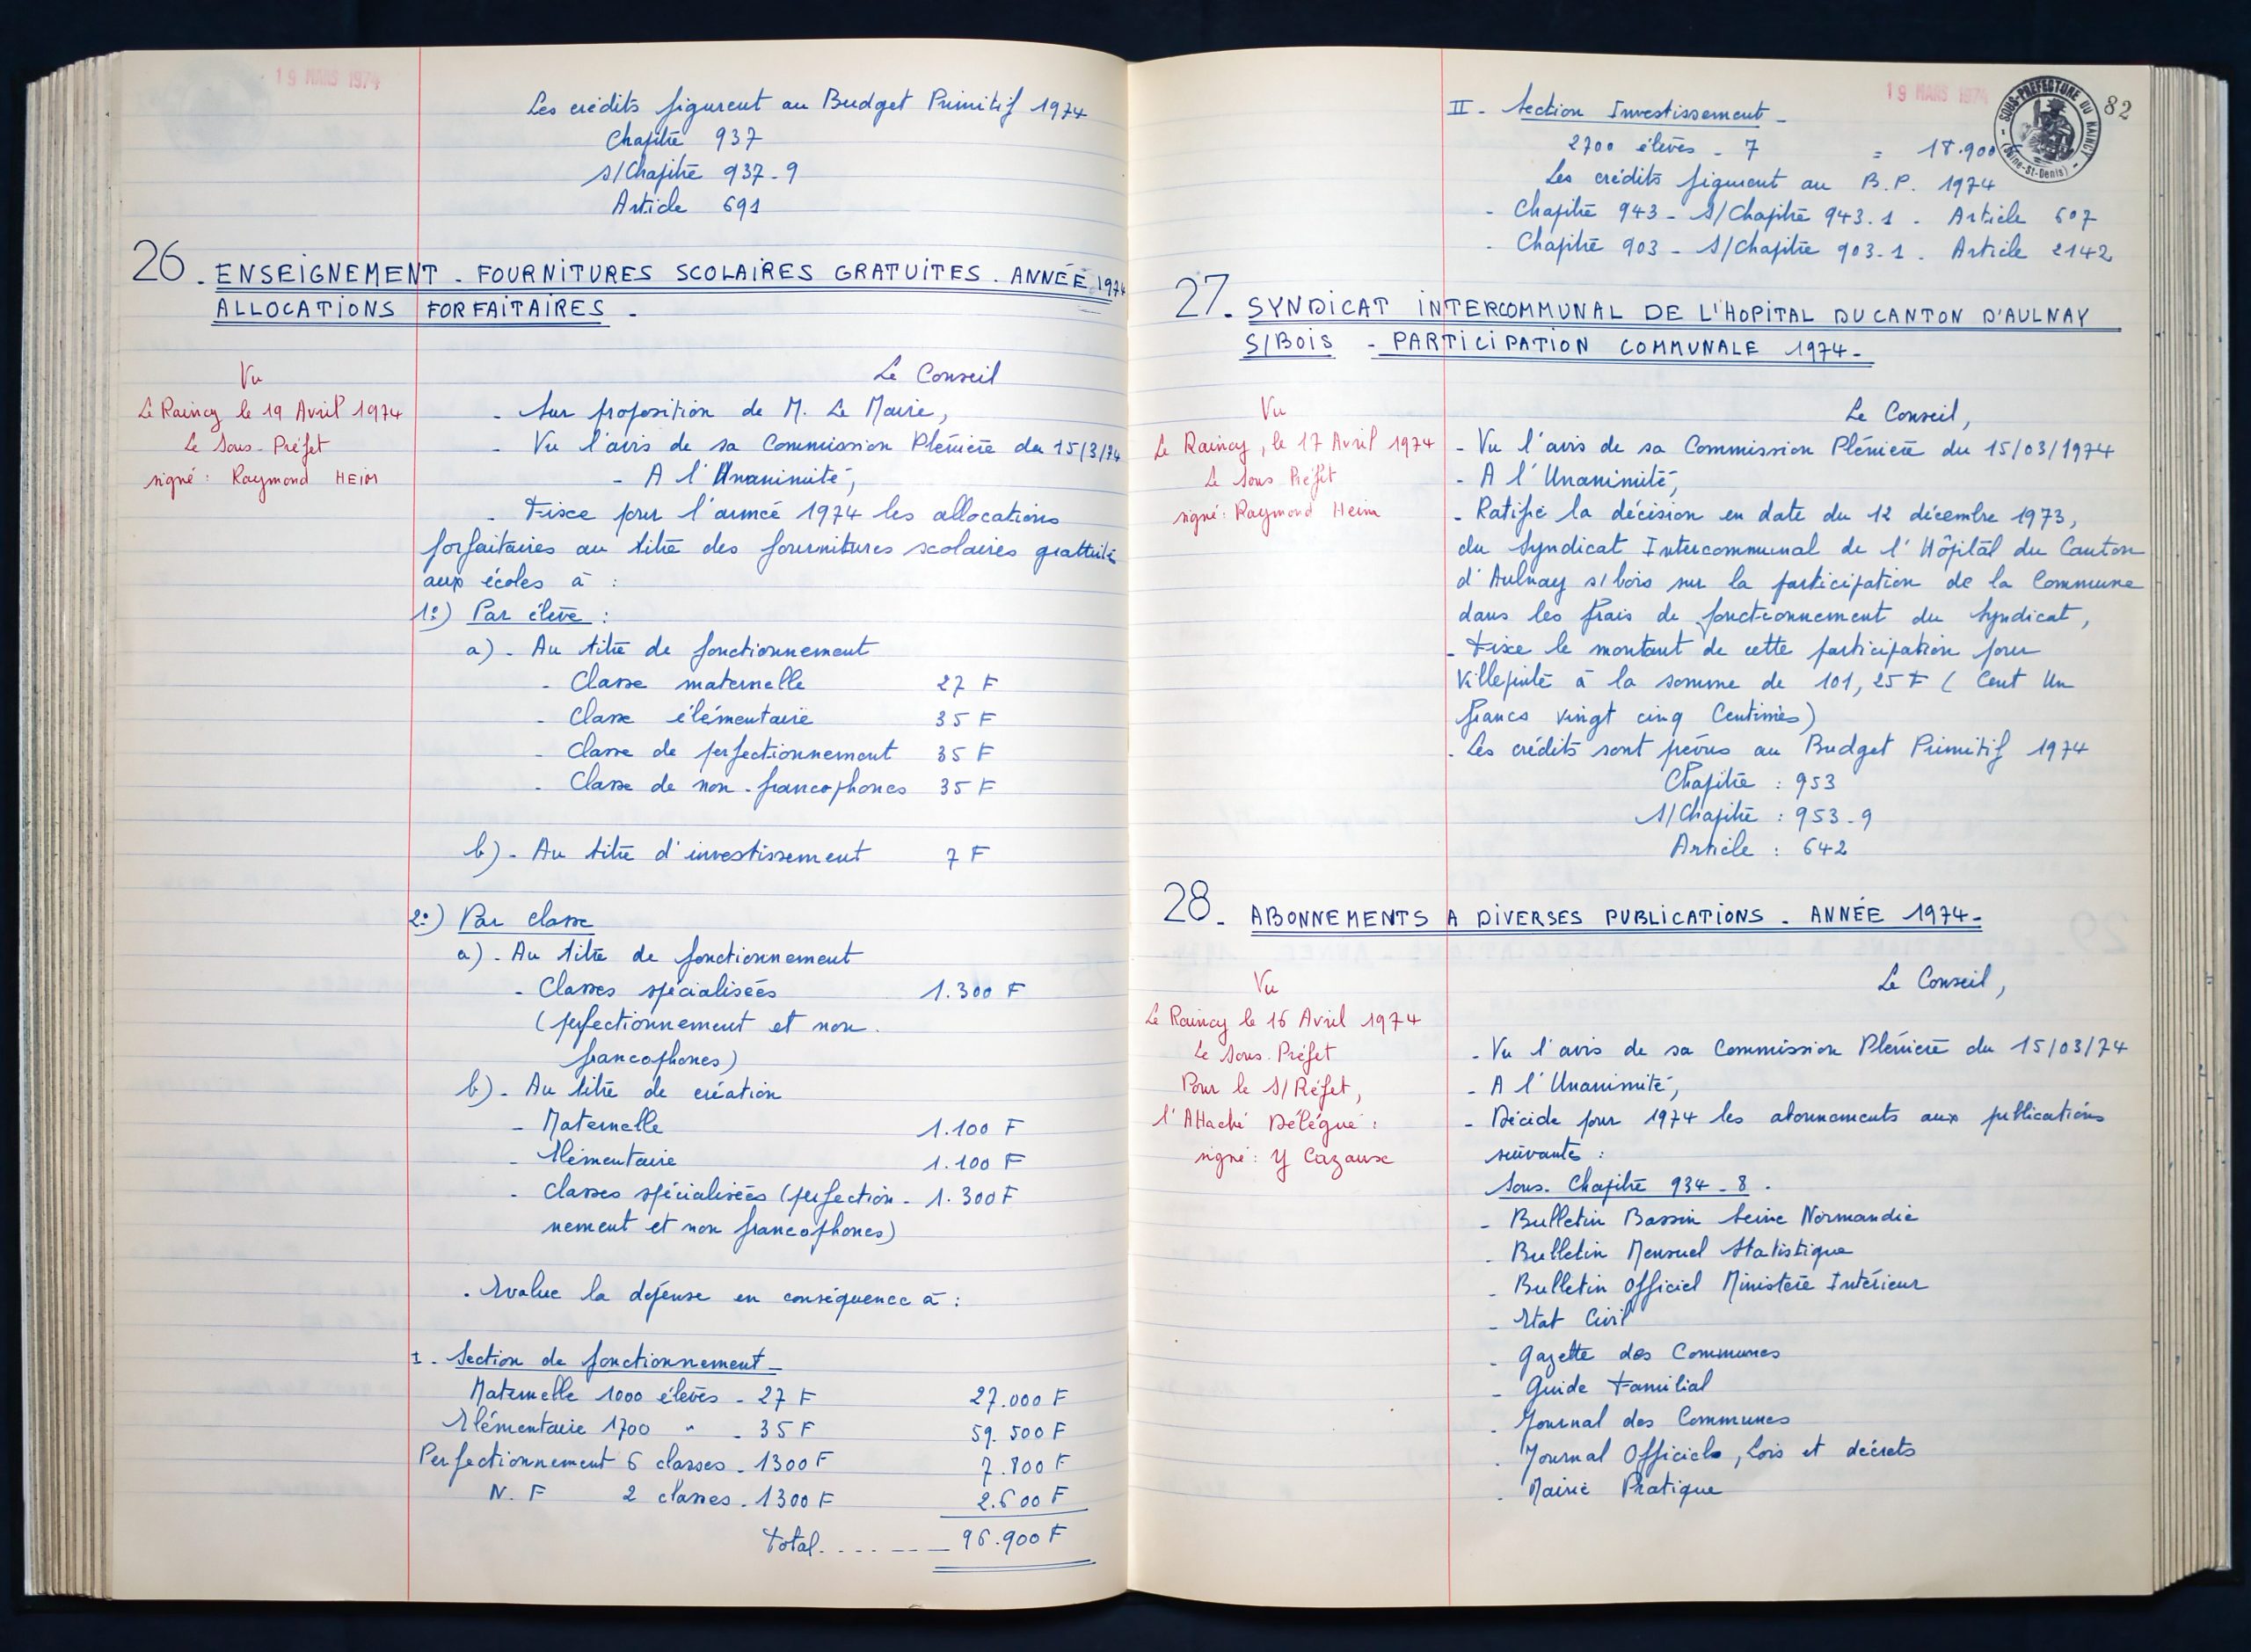 19 MARS 1974
Les crédits figurent au Budget Primitif 1974
Chapitre 937
s/Chapitre 937-9
Article 691
26. ENSEIGNEMENT. FOURNITURES SCOLAIRES GRATUITES. ANNÉE 1974
ALLOCATIONS FORFAITAIRES.
Vu
Le Raincy le 19 Avril 1974
Le Sous-Préfet
signé : Raymond HEIM
Le Conseil
- Sur proposition de M. Le Maire,
- Vu l'avis de sa Commission Plénière du 15/3/74
- A l'Unanimité,
- Fixe pour l'année 1974 les allocations
forfaitaires au titre des fournitures scolaires
aux écoles à :
1°) Par élève :
a) - Au titre de fonctionnement
- Classe maternelle 27 F
- Classe élémentaire 35 F
- Classe de perfectionnement 35 F
- Classe de non-francophones 35 F
b) - Au titre d'investissement 7 F
2°) Par classe
a) - Au titre de fonctionnement
- Classes spécialisées 1.300 F
(perfectionnement et non-
francophones)
b) - Au titre de création
- Maternelle 1.100 F
- Elémentaire 1.100 F
- Classes spécialisées (perfection- 1.300 F
nement et non francophones)
- Evalue la dépense en conséquence à :
I - Section de fonctionnement -
Maternelle 1000 élèves - 27 F 27.000 F
Elémentaire 1700 " - 35 F 59.500 F
Perfectionnement 6 classes - 1300 F 7.800 F
N. F 2 classes - 1300 F 2.600 F
Total........ 96.900 F
19 MARS 1974
SOUS-PRÉFECTURE DU RAINCY
(Seine-St-Denis)
82
II - Section Investissement -
2700 élèves - 7 = 18.900
Les crédits figurent au B.P. 1974
- Chapitre 943 - S/Chapitre 943.1 - Article 607
- Chapitre 903 - S/Chapitre 903-1 - Article 2142
27. SYNDICAT INTERCOMMUNAL DE L'HOPITAL DU CANTON D'AULNAY
S/BOIS - PARTICIPATION COMMUNALE 1974 -
Vu
Le Raincy, le 17 Avril 1974
Le Sous Préfet
signé : Raymond Heim
Le Conseil,
- Vu l'avis de sa Commission Plénière du 15/03/1974
- A l'Unanimité,
- Ratifie la décision en date du 12 décembre 1973,
du Syndicat Intercommunal de l'Hôpital du Canton
d'Aulnay s/bois sur la participation de la Commune
dans les frais de fonctionnement du Syndicat,
- Fixe le montant de cette participation pour
Villepinte à la somme de 101,25 F (Cent Un
francs vingt cinq Centimes)
- Les crédits sont prévus au Budget Primitif 1974
Chapitre : 953
S/Chapitre : 953-9
Article : 642
28. ABONNEMENTS A DIVERSES PUBLICATIONS - ANNÉE 1974 -
Vu
Le Raincy le 16 Avril 1974
Le Sous-Préfet
Pour le S/Préfet,
l'Attaché Délégué :
signé : Y Cazaux
Le Conseil,
- Vu l'avis de sa Commission Plénière du 15/03/74
- A l'Unanimité,
- Décide pour 1974 les abonnements aux publications
suivantes :
Sous-Chapitre 934-8.
- Bulletin Bassin Seine Normandie
- Bulletin Mensuel Statistique
- Bulletin Officiel Ministère Intérieur
- Etat Civil
- Gazette des Communes
- Guide Familial
- Journal des Communes
- Journal Officiels, Lois et décrets
- Mairie Pratique